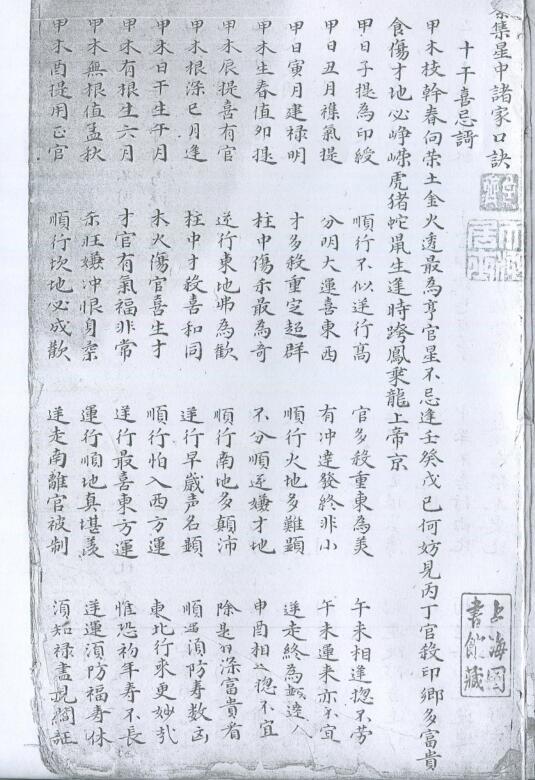 集星中諸家口訣
十干喜忌謌
甲木枝幹春向荣土金火透最為亨官星不忌逢壬癸戊己何妨見丙丁官殺印鄉多富貴
食傷才地必崢嶸虎猪蛇鼠生逢時跨鳳乘龍上帝京
甲日子提為印綬 順行不似逆行高 官多殺重東為美 午未相逢揔不劳
甲日丑月襍氣提 分明大運喜東西 有冲達發終非小 午未運来亦不宜
甲日寅月建禄明 才多殺重定超群 順行火地多難顯 逆走終為顕達人
甲木生春值卯提 柱中傷杀最為奇 不分順逆嫌才地 申酉相逢揔不宜
甲木辰提喜有官 逆行東地弗為歡 順行南地多顛沛 除是深富貴看
甲木根深巳月逢 柱中才殺喜和同 逆行早歲声名顕 順須防寿数凶
甲木日干生午月 木火傷官喜生才 順行怕入西方運 東北行来更妙哉
甲木有根生六月 才官有氣福非常 逆行最喜東方運 惟恐初年寿不長
甲木無根值孟秋 杀旺嫌冲恨身柔 運行順地真堪羡 逆運須防福寿休
甲木酉提用正官 順行坎地必成歡 逆走南離官被制 須知禄盡見閻
上海圖書館藏